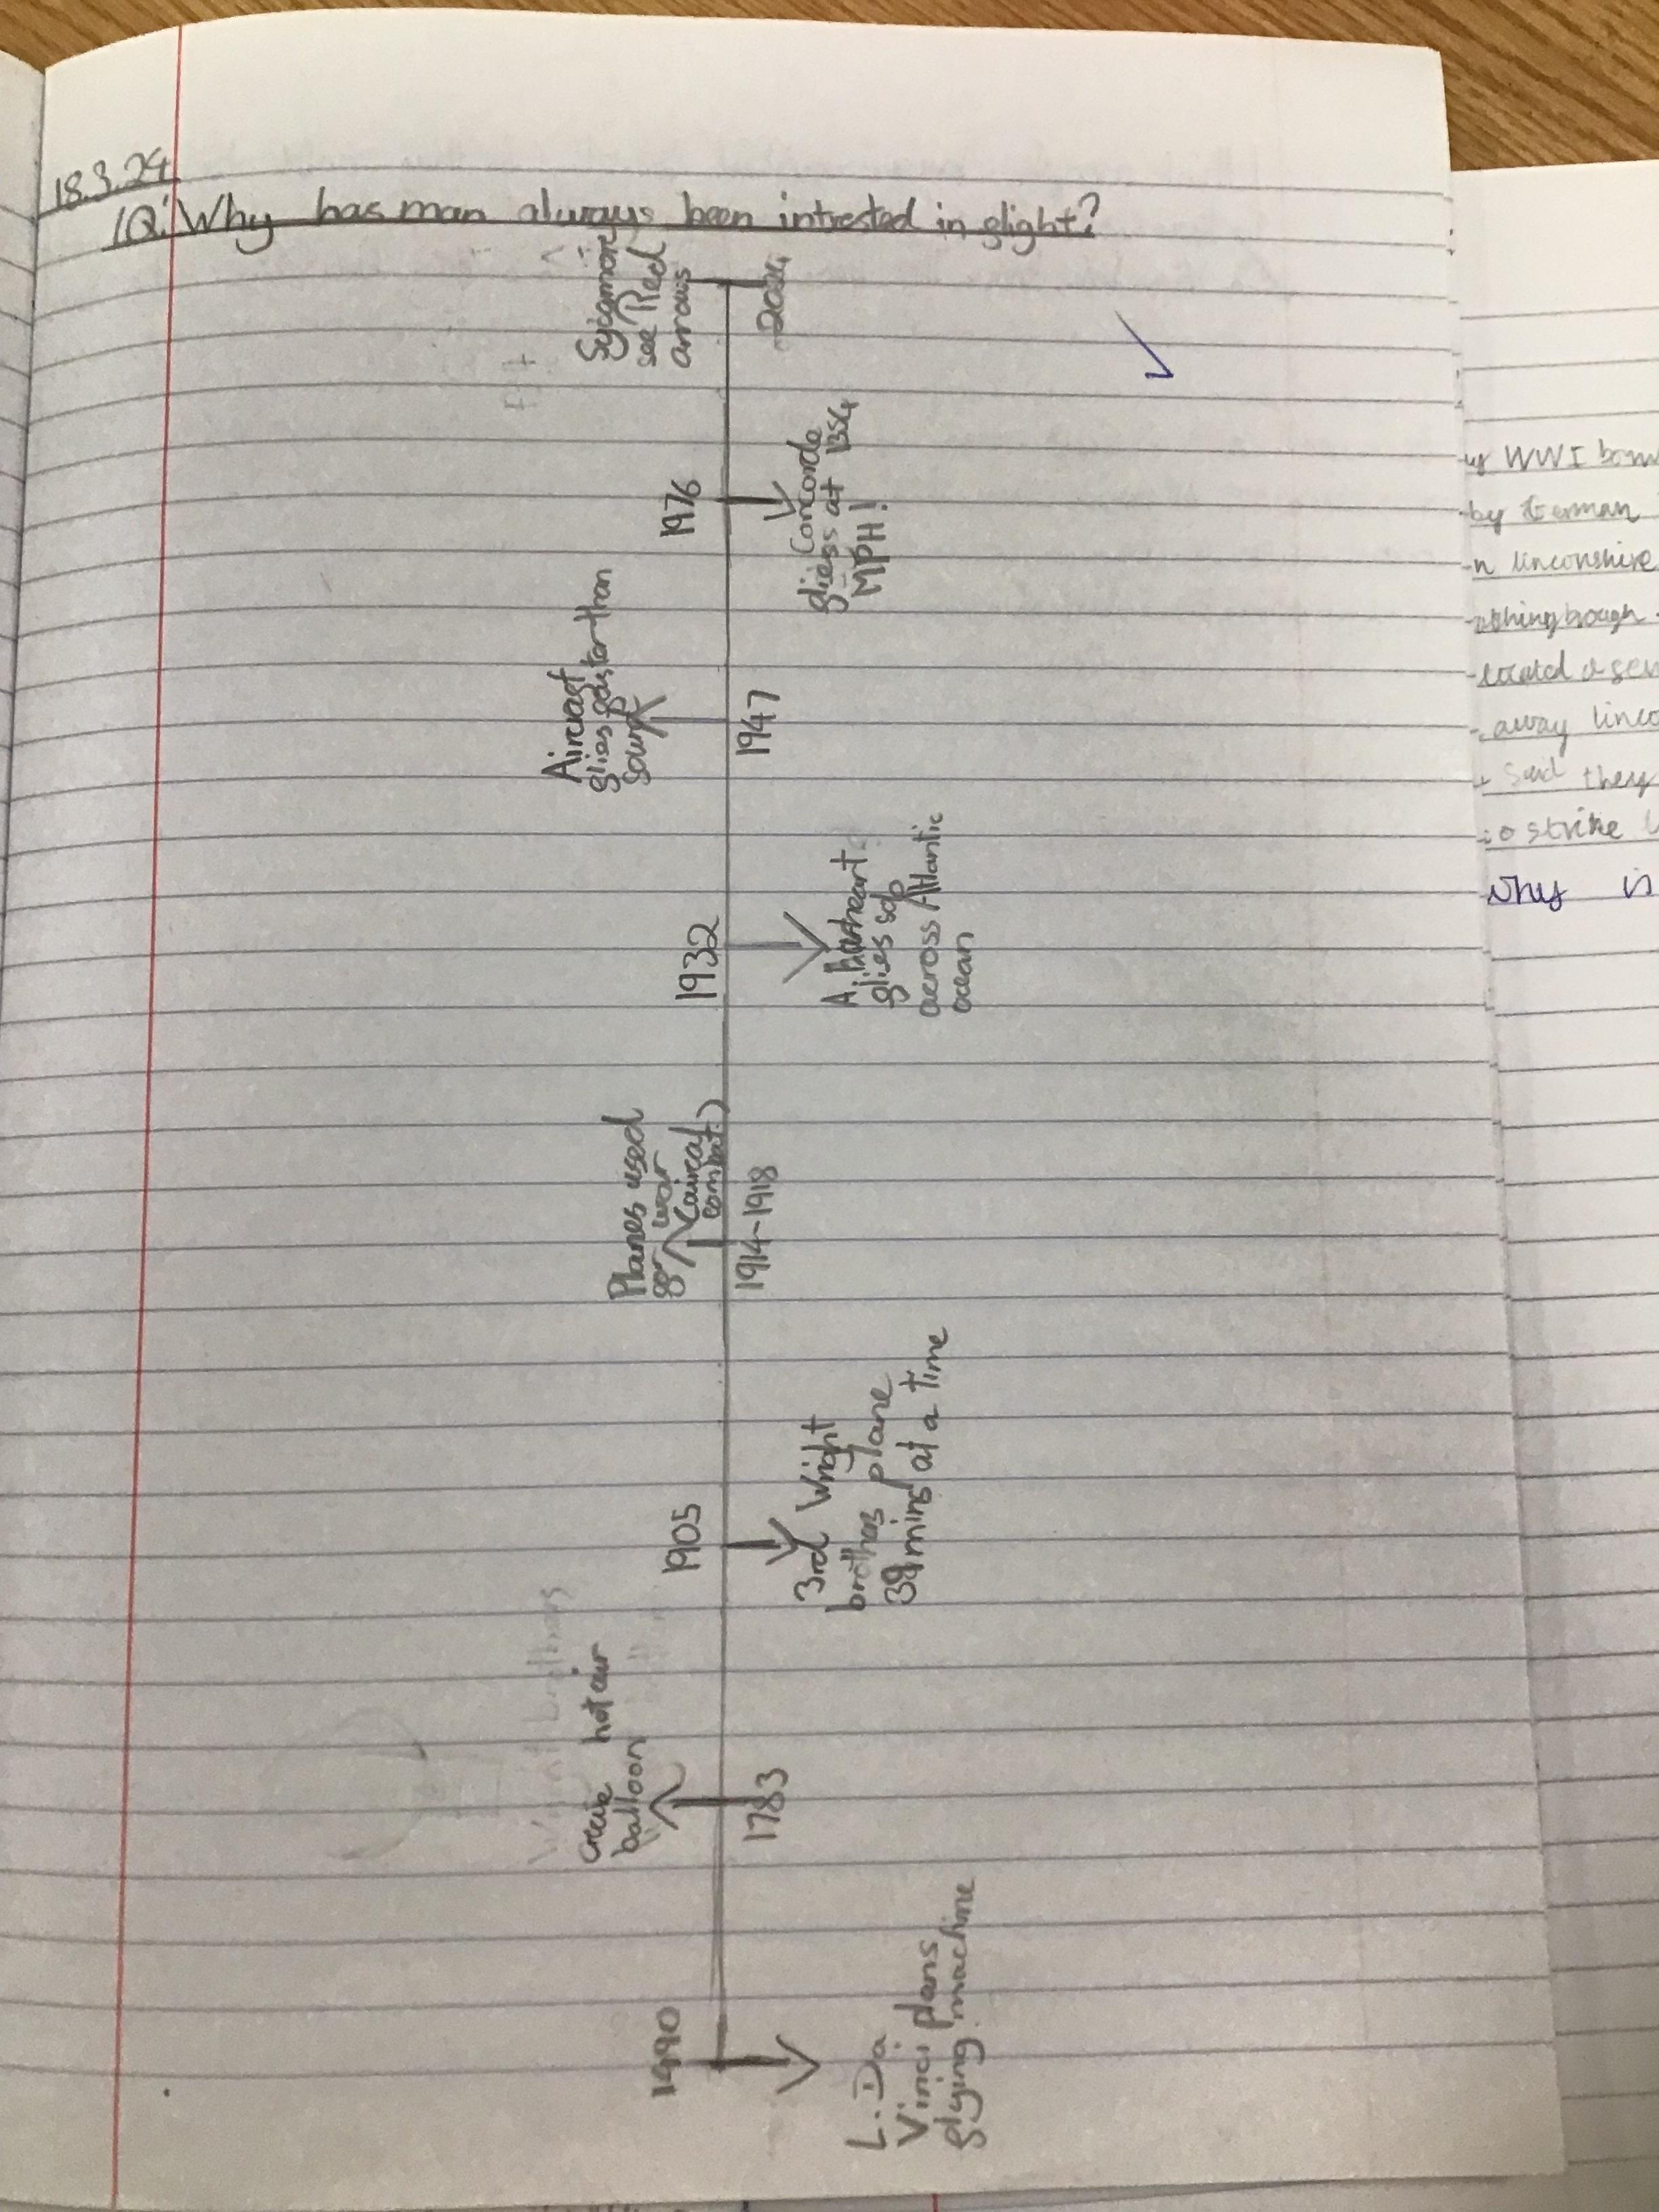 18.3.24
IQ: Why has man always been intrested in flight?
1490
L. Da
Vinci plans
flying machine
create hot air
balloon
1783
1905
3rd Wright
brothers plane
39 mins at a time
Planes used
for war
(airical
combat)
1914-1918
1932
A.
flies solo
across Atlantic
ocean
Aircraft
flies faster than
sound
1947
1976
Concorde
fliess at 1354
MPH!
Sycamore
see Red
arrows
2024
WWI
by German
linconshire
away
said they
strike
why is